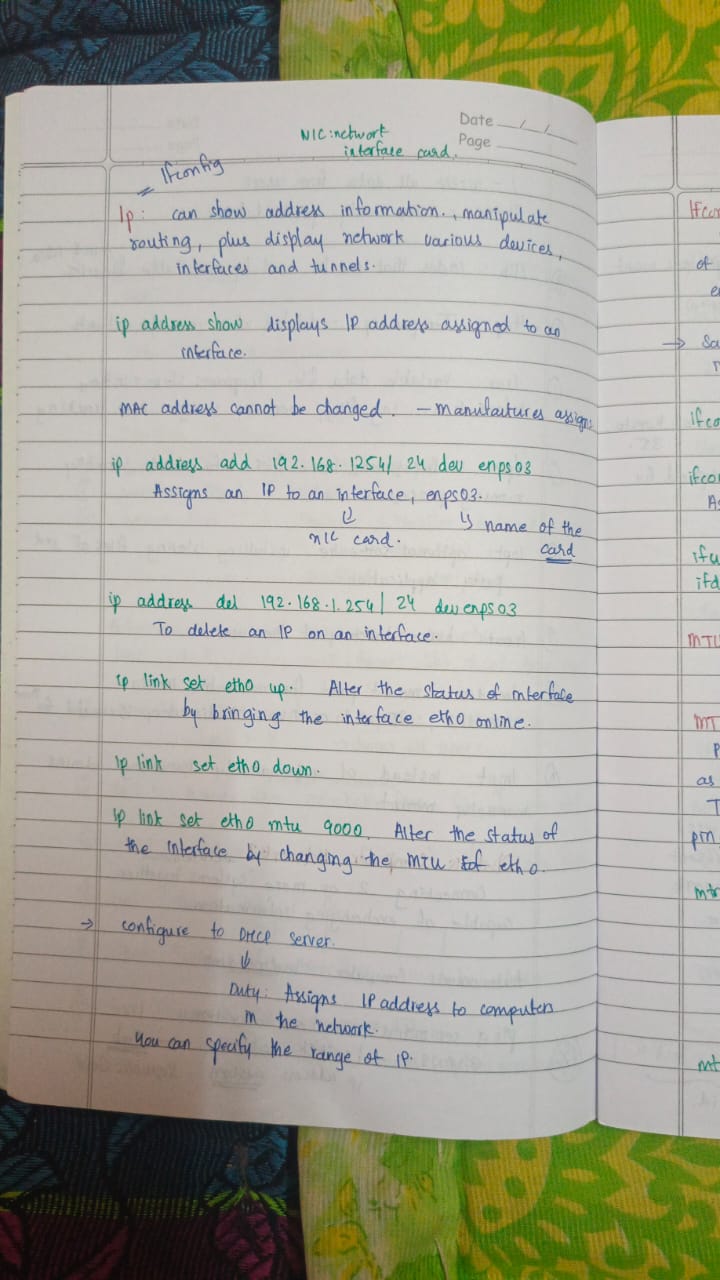 Date __/__/__
NIC: network
Page
interface card.
Ifconfig
Ip: can show address information., manipulate
routing, plus display network various devices,
interfaces and tunnels.
ip address show displays IP address assigned to an
interface.
MAC address cannot be changed. - manufactures assigns
ip address add 192.168.1254/ 24 dev enps03
Assigns an IP to an interface, enps03.
NIC card. ↳ name of the
card
ip address del 192.168.1.254/ 24 dev enps03
To delete an IP on an interface.
ip link set eth0 up. Alter the status of interface
by bringing the interface eth0 online.
Ip link set eth0 down.
Ip link set eth0 mtu 9000. Alter the status of
the Interface by changing the MTU of eth0.
→ configure to DHCP server.
Duty: Assigns IP address to computers
in the network.
You can specify the range of IP.
of
→ Sa
ifco
ifco
ifu
ifd
MTU
MT
as
T
pm
mt